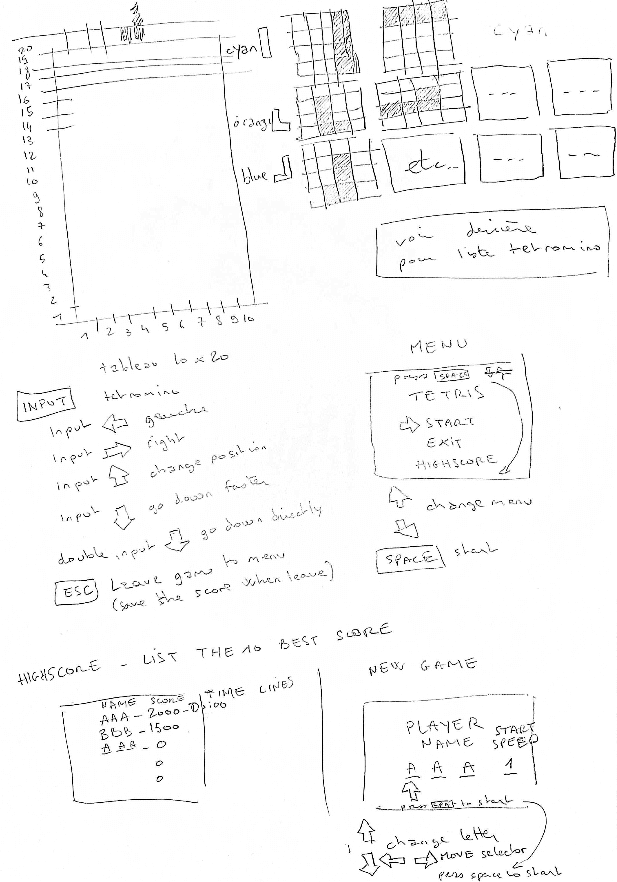 cyan
CYAN
20
19
18
17
16
15
14
13
12
11
10
9
8
7
6
5
4
3
2
1
orange
blue
etc..
voir derrière
pour liste tetromino
1 2 3 4 5 6 7 8 9 10
tableau 10 x 20
tetromino
INPUT
input gauche
input right
input change position
input go down faster
double input go down directly
ESC Leave game to menu
(save the score when leave)
MENU
press SPACE
TETRIS
START
EXIT
HIGHSCORE
change menu
SPACE start
HIGHSCORE - LIST THE 10 BEST SCORE
NAME SCORE TIME LINES
AAA - 2000 -
BBB - 1500
A AA - 0
0
0
NEW GAME
PLAYER NAME
START SPEED
A A A 1
press to start
change letter
MOVE selector
press space to start